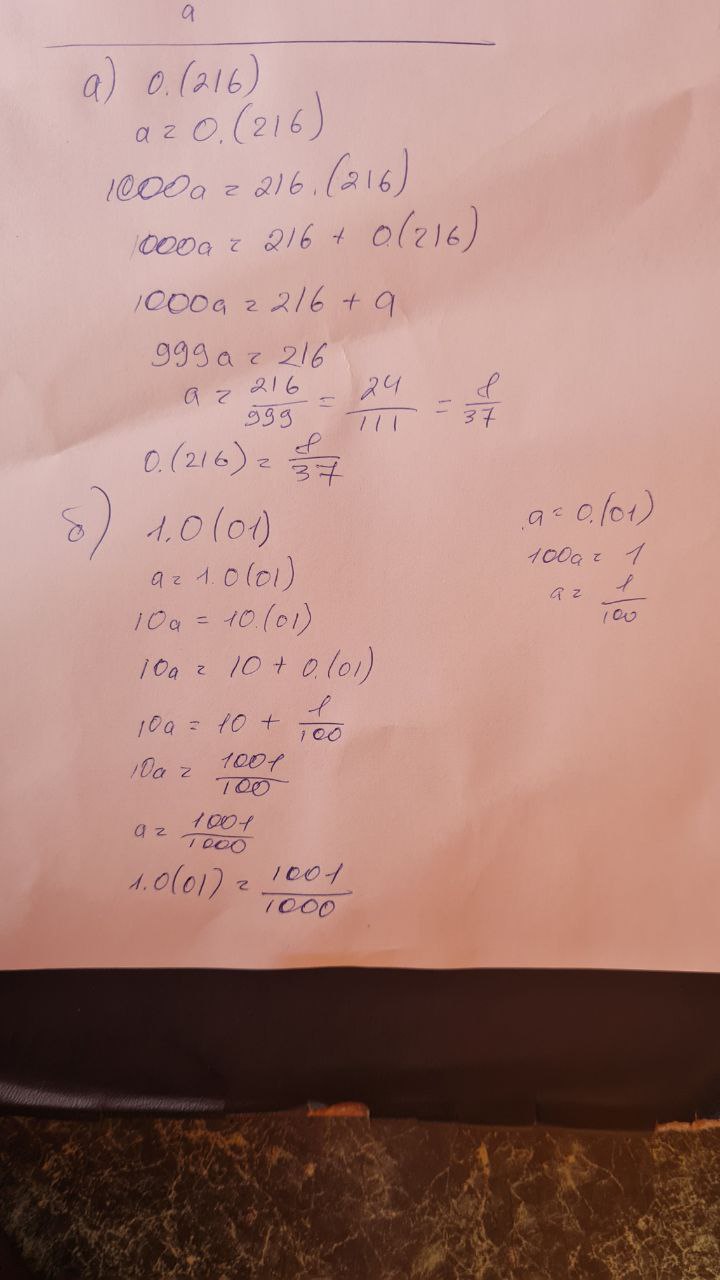 a
а) 0.(216)
a = 0.(216)
1000a = 216.(216)
1000a = 216 + 0(216)
1000a = 216 + a
999a = 216
a = 216/999 = 24/111 = 8/37
0.(216) = 8/37
б) 1.0(01)
a = 1.0(01)
10a = 10.(01)
10a = 10 + 0.(01)
10a = 10 + 1/100
10a = 1001/100
a = 1001/1000
1.0(01) = 1001/1000
a = 0.(01)
100a = 1
a = 1/100